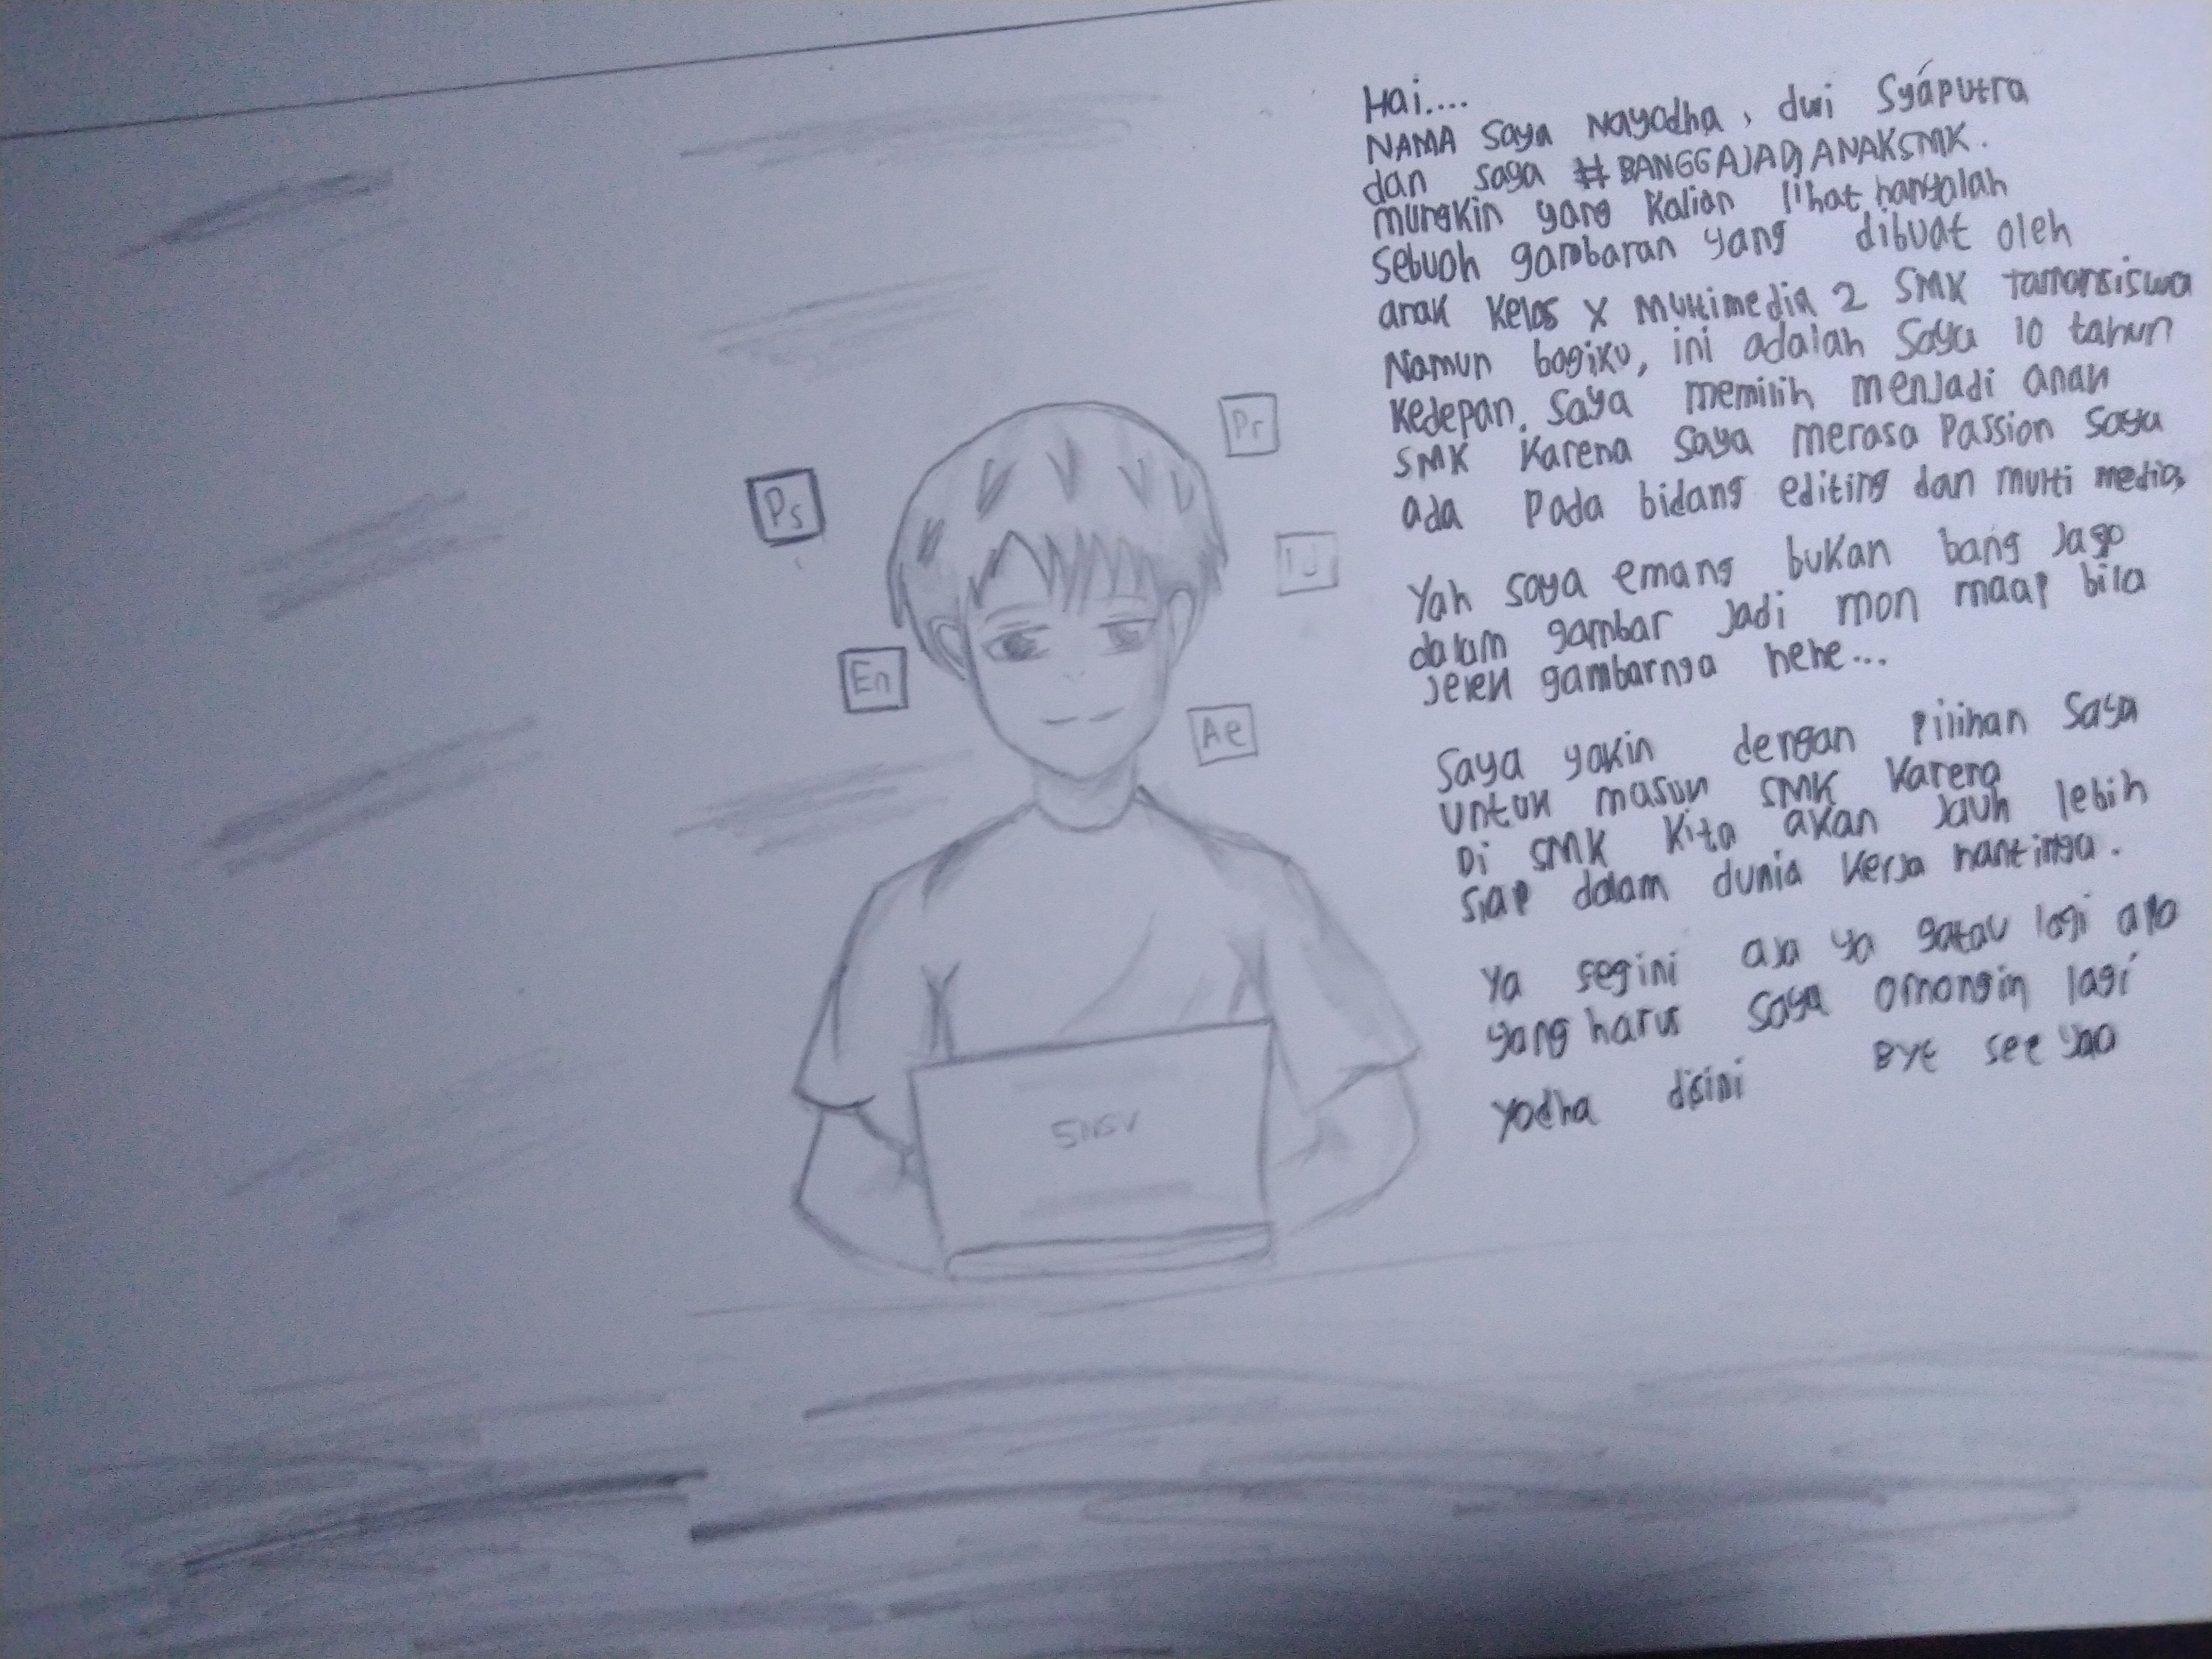 Hai....
NAMA saya Nayodha, dwi Syaputra
dan saya #BANGGAJADIANAKSMK.
mungkin yang kalian lihat hanyalah
sebuah gambaran yang dibuat oleh
anak kelas X Multimedia 2 SMK tamansiswa
Namun bagiku, ini adalah saya 10 tahun
kedepan. Saya memilih menjadi anak
SMK karena saya merasa passion saya
ada pada bidang editing dan multi media,
Yah saya emang bukan bang jago
dalam gambar jadi mon maap bila
jelek gambarnya hehe...
Saya yakin dengan pilihan saya
untuk masuk SMK karena
Di SMK kita akan jauh lebih
siap dalam dunia kerja nantinya.
Ya segini aja ya gatau lagi apa
yang harus saya omongin lagi
yodha disini BYE see yaa
Pr
Ps
En
Ae